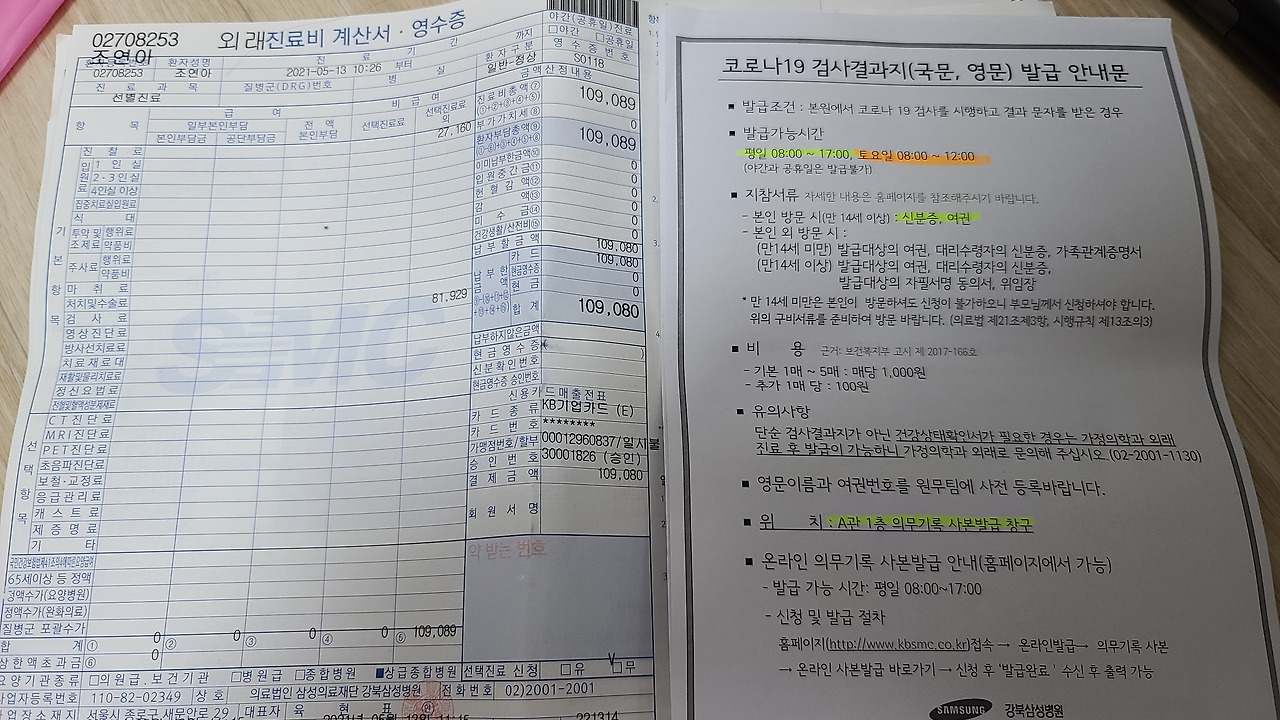 02708253
조연아
외 래진료비 계산서 · 영수증
환자성명
진 료 기 간
환자구분
야간(공휴일)진료
□야간 □공휴일
영 수 증 번 호
02708253 조연아 2021-05-13 10:26 부터 까지 일반-정상 S0118
진 료 과 목 질병군(DRG)번호 병 실
선별진료
금액산정내용
항 목
급 여
비 급 여
일부본인부담
전 액
본인부담
선택진료료
선택진료료
외
본인부담금 공단부담금
진 찰 료 27,160
1 인 실
2·3인실
4인실 이상
집중치료실입원료
식 대
투약 및 행위료
조제료 약품비
주사료 행위료
약품비
마 취 료
처치및수술료
검 사 료 81,929
영상진단료
방사선치료료
치료재료대
재활및물리치료료
정신요법료
전혈및혈액성분제제료
CT진단료
MRI진단료
PET진단료
초음파진단료
보철·교정료
응급관리료
캐스트료
제증명료
기 타
65세이상 등 정액
정액수가(요양병원)
정액수가(완화의료)
질병군 포괄수가
합 계 ① 0 ② 0 ③ 0 ④ 0 ⑤ 109,089
상한액초과금 ⑥ 0
진료비총액⑦ 109,089
부가가치세⑧ 0
환자부담총액⑨ 109,089
이미납부한금액⑩ 0
입원중간금⑪ 0
헌혈감액⑫ 0
감 액⑬ 0
미 수 금⑭ 0
건강생활/산전비⑮ 0
납부할금액 109,080
납부한
금액
카 드 109,080
현금영수증 0
현 금 0
합 계 109,080
납부하지않은금액
현금영수증( )
신분확인번호
현금영수증 승인번호
신용카드매출전표
카 드 종 류 KB기업카드 (E)
카 드 번 호 ********
가맹점번호/할부 00012960837/일시불
승 인 번 호 30001826 (승인)
결 제 금 액 109,080
회 원 서 명
약 받는 번호
요양기관종류 □의원급.보건기관 □병원급 □종합병원 ■상급종합병원 선택진료 신청 □유 □무
사업자등록번호 110-82-02349 상 호 의료법인 삼성의료재단 강북삼성병원 전화번호 02)2001-2001
사업장소재지 서울시 종로구 새문안로 29 대표자 육 현 표
221314
SMC
코로나19 검사결과지(국문, 영문) 발급 안내문
▪ 발급조건 : 본원에서 코로나 19 검사를 시행하고 결과 문자를 받은 경우
▪ 발급가능시간
평일 08:00 ~ 17:00, 토요일 08:00 ~ 12:00
(야간과 공휴일은 발급불가)
▪ 지참서류 자세한 내용은 홈페이지를 참조해주시기 바랍니다.
- 본인 방문 시(만 14세 이상) : 신분증, 여권
- 본인 외 방문 시 :
(만14세 미만) 발급대상의 여권, 대리수령자의 신분증, 가족관계증명서
(만14세 이상) 발급대상의 여권, 대리수령자의 신분증,
발급대상의 자필서명 동의서, 위임장
* 만 14세 미만은 본인이 방문하셔도 신청이 불가하오니 부모님께서 신청하셔야 합니다.
위의 구비서류를 준비하여 방문 바랍니다. (의료법 제21조제3항, 시행규칙 제13조의3)
▪ 비 용 근거: 보건복지부 고시 제 2017-166호
- 기본 1매 ~ 5매 : 매당 1,000원
- 추가 1매 당 : 100원
▪ 유의사항
단순 검사결과지가 아닌 건강상태확인서가 필요한 경우는 가정의학과 외래
진료 후 발급이 가능하니 가정의학과 외래로 문의해 주십시오.(02-2001-1130)
▪ 영문이름과 여권번호를 원무팀에 사전 등록바랍니다.
▪ 위 치 : A관 1층 의무기록 사본발급 창구
▪ 온라인 의무기록 사본발급 안내(홈페이지에서 가능)
- 발급 가능 시간: 평일 08:00~17:00
- 신청 및 발급 절차
홈페이지(http://www.kbsmc.co.kr)접속 → 온라인발급→ 의무기록 사본
→ 온라인 사본발급 바로가기 → 신청 후 '발급완료' 수신 후 출력 가능
SAMSUNG 강북삼성병원